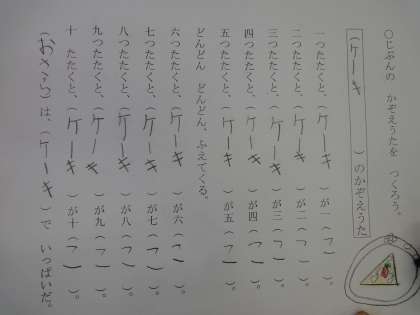 ○じぶんの かぞえうたを つくろう。
（ケーキ　　　）のかぞえうた
一つたたくと、（ケーキ　）が一（つ）。
二つたたくと、（ケーキ　）が二（つ）。
三つたたくと、（ケーキ　）が三（つ）。
四つたたくと、（ケーキ　）が四（つ）。
五つたたくと、（ケーキ　）が五（つ）。
どんどん どんどん、ふえてくる。
六つたたくと、（ケーキ　）が六（つ）。
七つたたくと、（ケーキ　）が七（つ）。
八つたたくと、（ケーキ　）が八（つ）。
九つたたくと、（ケーキ　）が九（つ）。
十 たたくと、（ケーキ　）が十（つ）。
（おさら）は、（ケーキ）で いっぱいだ。